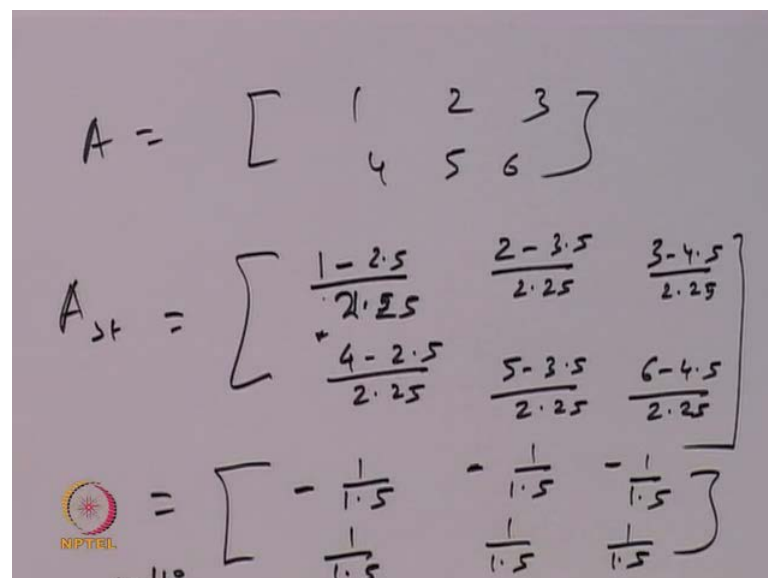 A = [ 1 2 3
4 5 6 ]
A_st = [ (1-2.5)/2.25 (2-3.5)/2.25 (3-4.5)/2.25
(4-2.5)/2.25 (5-3.5)/2.25 (6-4.5)/2.25 ]
= [ -1/1.5 -1/1.5 -1/1.5
1/1.5 1/1.5 1/1.5 ]
NPTEL